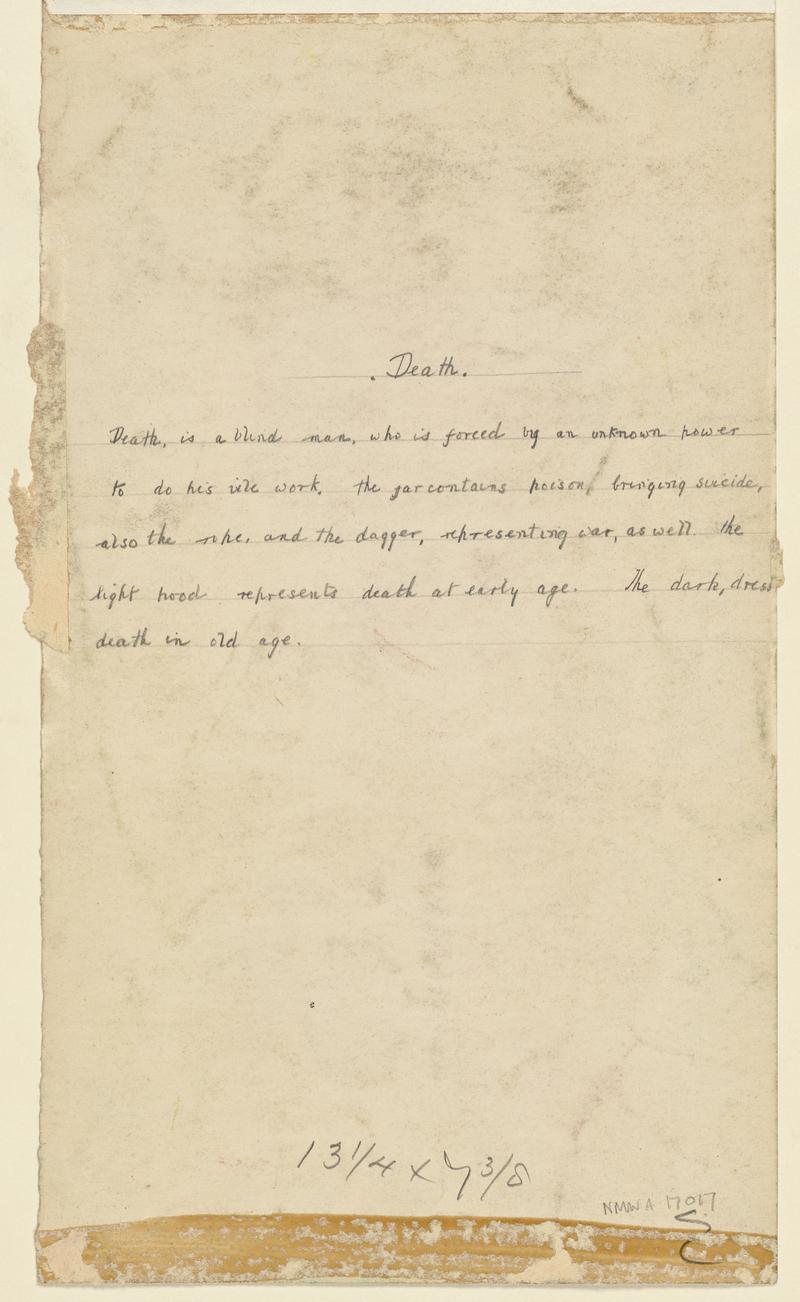 . Death.
Death, is a blind man, who is forced by an unknown power
to do his vile work. the jar contains poison, bringing suicide,
also the rope, and the dagger, representing war, as well. the
light hood represents death at early age. The dark, dress
death in old age.
13 1/4 x 7 3/8
NMW A 17017